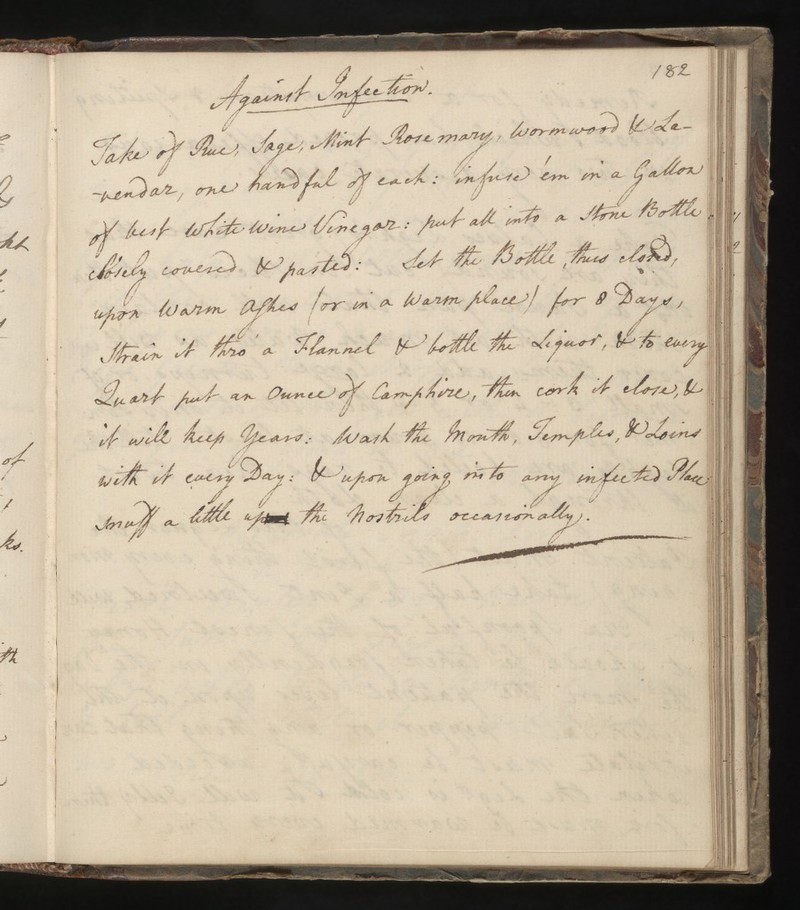 182
Against Infection.
Take of Rue, Sage, Mint, Rosemary, Wormwood & La-
-vendar, one handful of each: infuse 'em in a Gallon
of best White Wine Vinegar: put all into a Stone Bottle
closely covered & pasted: Set the Bottle, thus closed,
upon warm Ashes (or in a warm place) for 8 Days,
Strain it thro' a Flannel & bottle the Liquor, & to every
Quart put an Ounce of Camphire, then cork it close, &
it will keep Years: Wash the Mouth, Temples, & Loins
with it every Day: & upon going into any infected Place
snuff a little up the Nostrils occasionally.
of
ks.
th